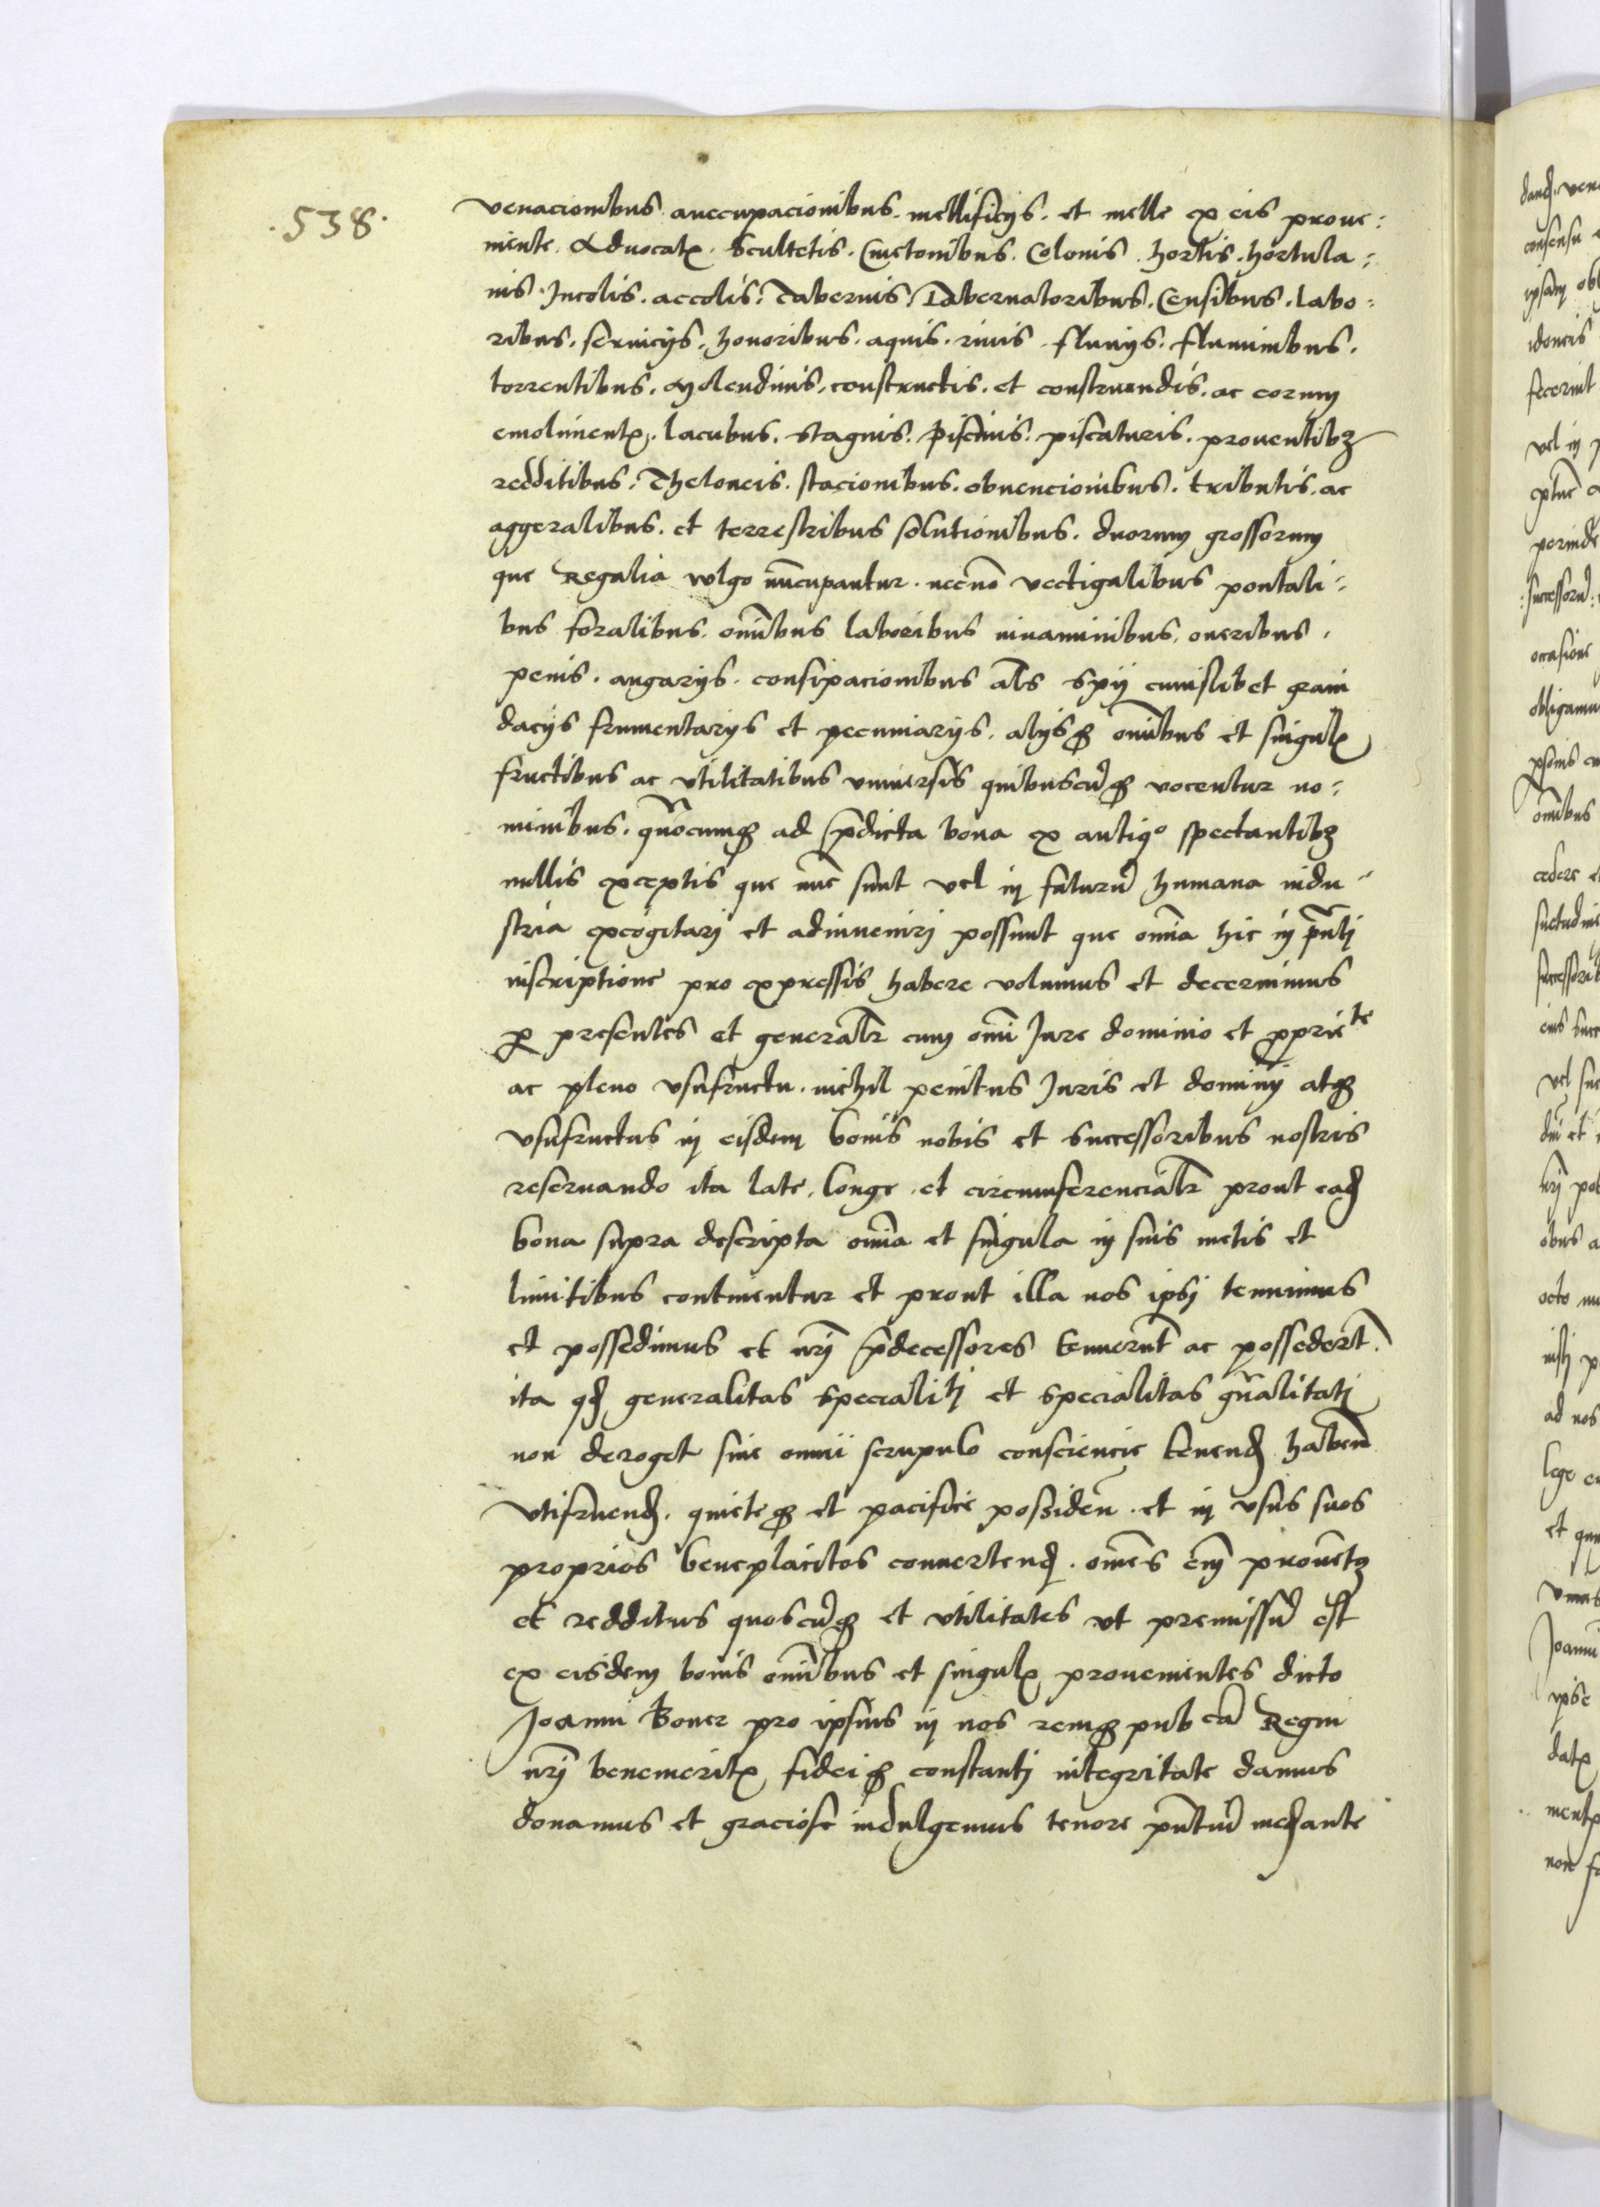 .538.
venacionibus aucupacionibus. mellificijs. et melle ex eis prove:
niente. Advocatis. Scultetis. Cmetonibus. Colonis. hortis. hortula:
nis. Incolis. accolis. Tabernis. Tabernatoribus. Censibus. labo:
ribus. servicijs. honoribus. aquis. rivis. fluvijs. fluminibus.
torrentibus. Molendinis. constructis. et construendis. ac eorum
emolimentis. lacubus. stagnis. piscinis. piscaturis. proventibz
redditibus. Theloneis. stacionibus. obvencionibus. tributis. ac
aggeralibus. et terrestribus solutionibus. duorum grossorum
que Regalia vulgo nucupantur. necno vectigalibus pontali:
bus foralibus. omibus laboribus iuvaminibus. oneribus.
penis. angarijs. als cuiuslibet grani
dacijs frumentarijs et pecuniarijs. alijsq omibus et singulis
fructibus ac utilitatibus universis quibuscuq vocentur no:
minibus. quocumq ad pdicta bona ex antiqo spectantibz
nullis exceptis que nuc sunt vel in futuru humana indu:
stria excogitari et adinveniri possunt que omia hic in pnti
inscriptione pro expressis habere volumus et decernimus
p presentes et generalr cum omi Iure dominio et propriete
ac pleno usufructu. nichil penitus Iuris et dominij atq
usufructus in eisdem bonis nobis et successoribus nostris
reservando ita late. longe. et circumferencialr prout ead
bona supra descripta omia et singula in suis metis et
limitibus continentur et prout illa nos ipsi tenuimus
et possedimus et nri pdecessores tenuerut ac possedert.
ita qd generalitas specialiti et specialitas gnalitati
non deroget sine omni scrupulo consciencie tenend haben
utifruend. quieteq et pacifice possiden. et in usus suos
proprios beneplacitos convertend. omes em provetz
et redditus quoscuq et utilitates ut premissu est
ex eisdem bonis omibus et singulis provenientes dicto
Joanni Boner pro ipsius in nos remq pubca Regni
nri benemeritis fideiq constanti integritate damus
donamus et graciose indulgemus tenore pntiu mediante